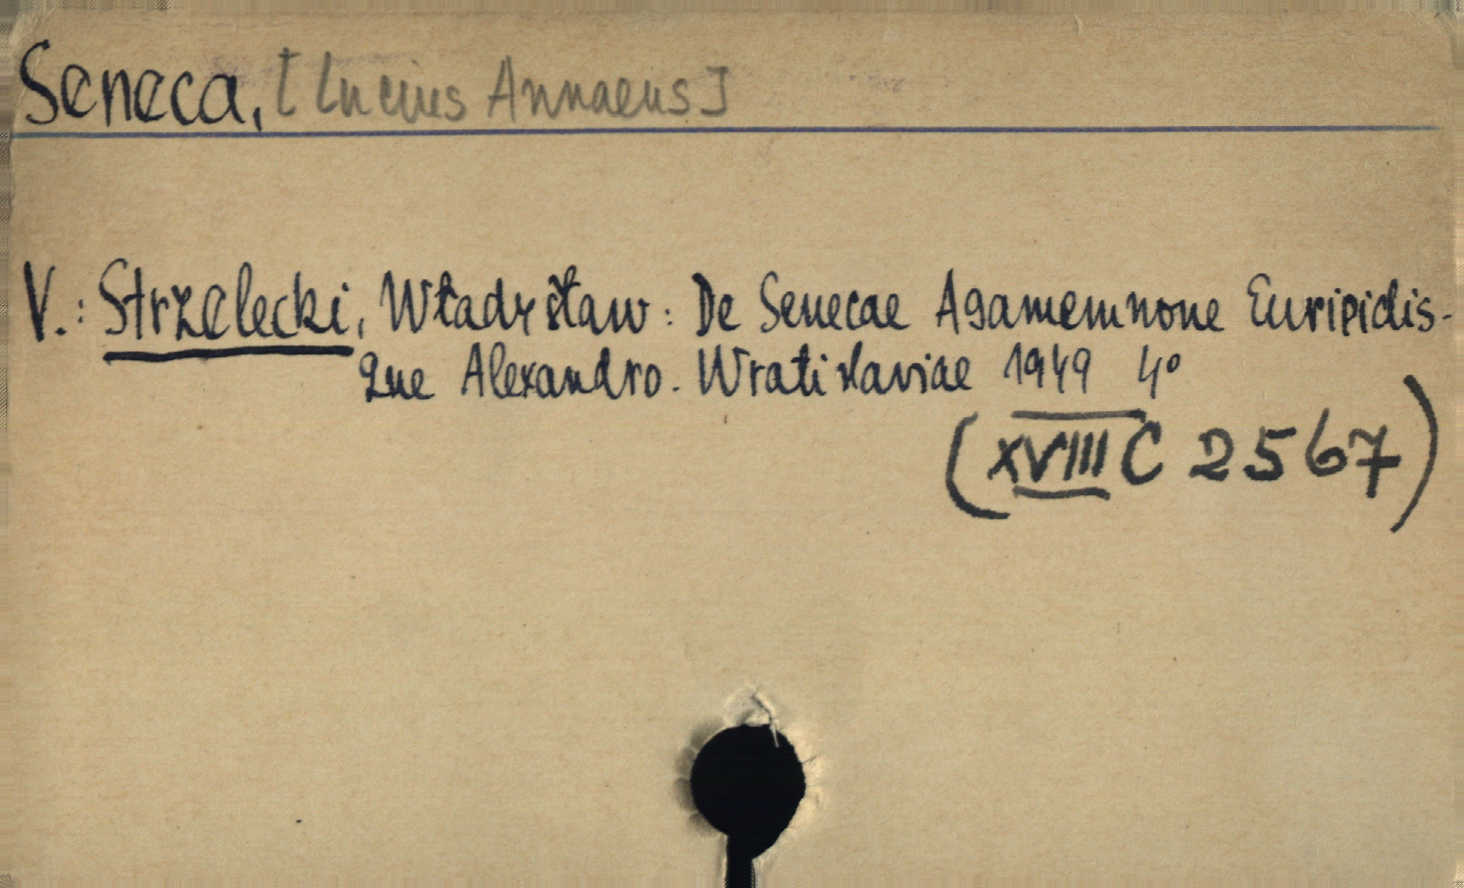 Seneca, [Lucius Annaeus]
V.: Strzelecki, Władysław: De Senecae Agamemnone Euripidis-
que Alexandro. Wratislaviae 1949 4°
(XVIII C 2567)